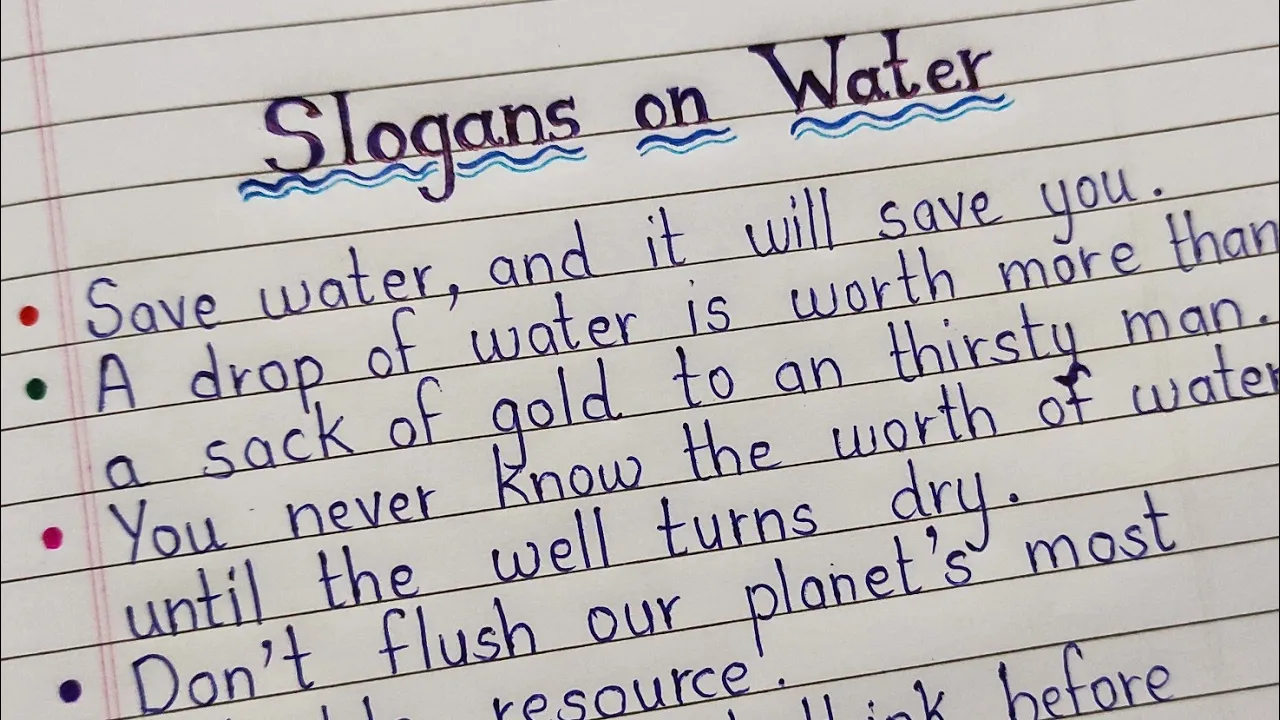 Slogans on Water
Save water, and it will save you.
A drop of water is worth more than
a sack of gold to an thirsty man.
You never know the worth of water
until the well turns dry.
Don't flush our planet's most
resource.
before